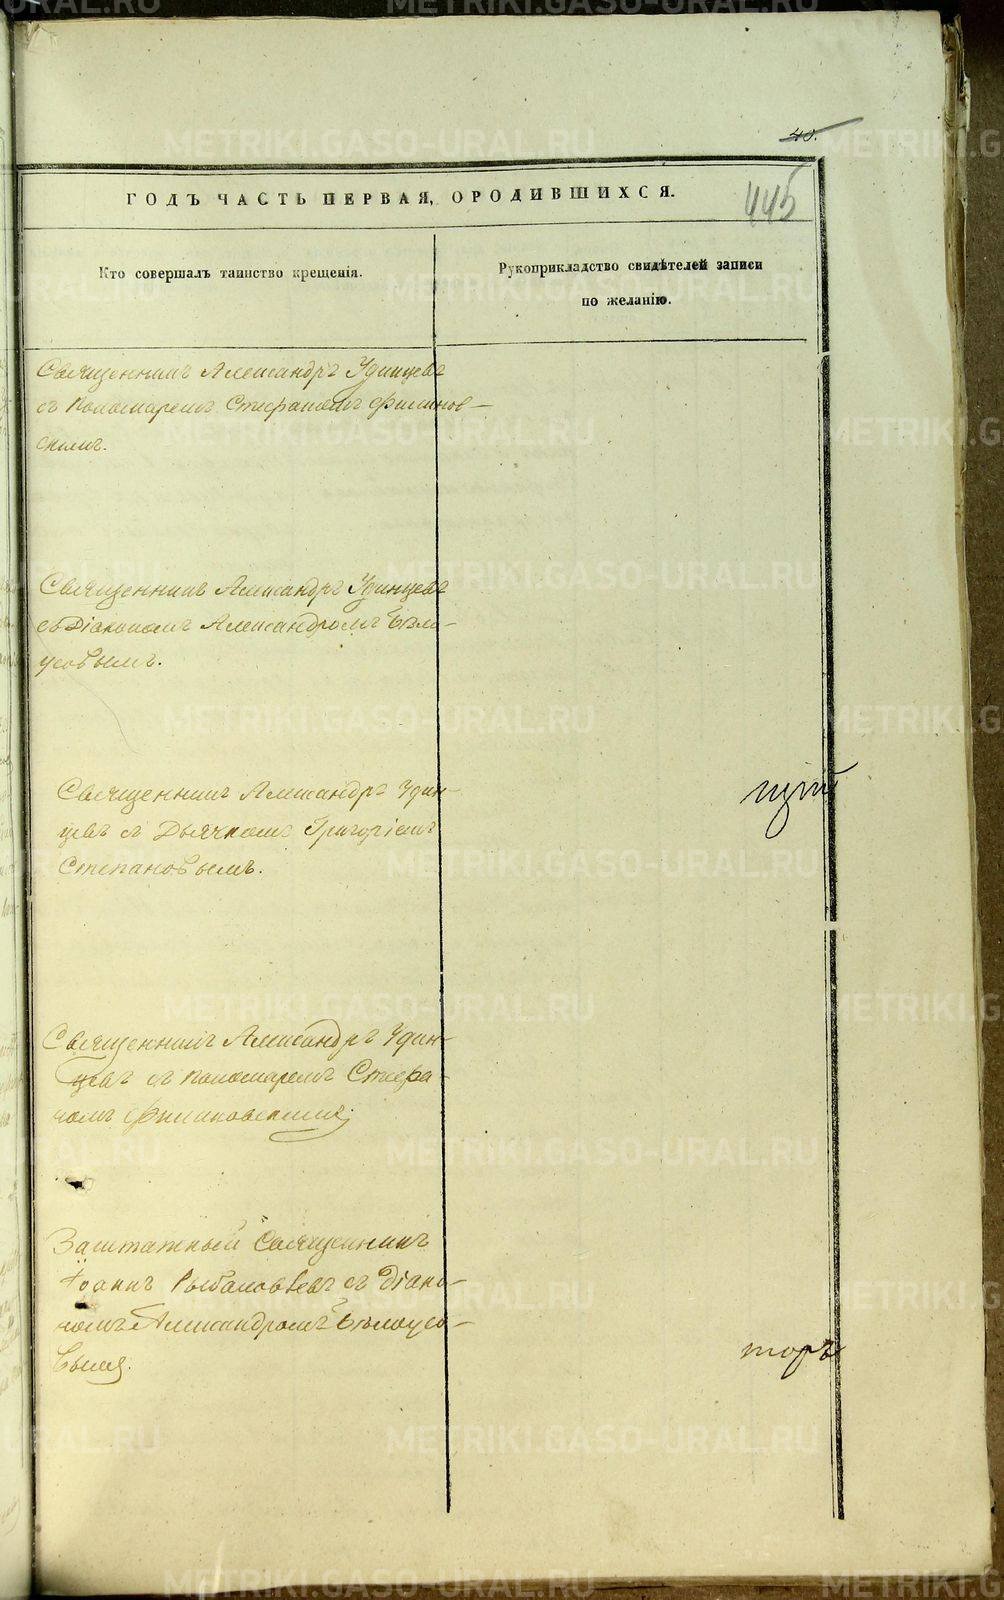 40.
ГОДЪ ЧАСТЬ ПЕРВАЯ, ОРОДИВШИХСЯ.
445
Кто совершалъ таинство крещенія.
Рукоприкладство свидѣтелей записи
по желанію.
Священникъ Александръ Удинцевъ
съ Пономаремъ Стефаномъ Филинов-
скимъ.
Священникъ Александръ Удинцевъ
съ Діакономъ Александромъ Бѣло-
усовымъ.
Священникъ Александръ Удин-
цевъ съ Дьячкомъ Григоріемъ
Степановымъ.
Священникъ Александръ Удин-
цевъ съ Пономаремъ Стефа-
номъ Филиновскимъ.
Заштатный Священникъ
Іоаннъ съ Діако-
номъ Александромъ Бѣлоусо-
вымъ.
торъ
METRIKI.GASO-URAL.RU